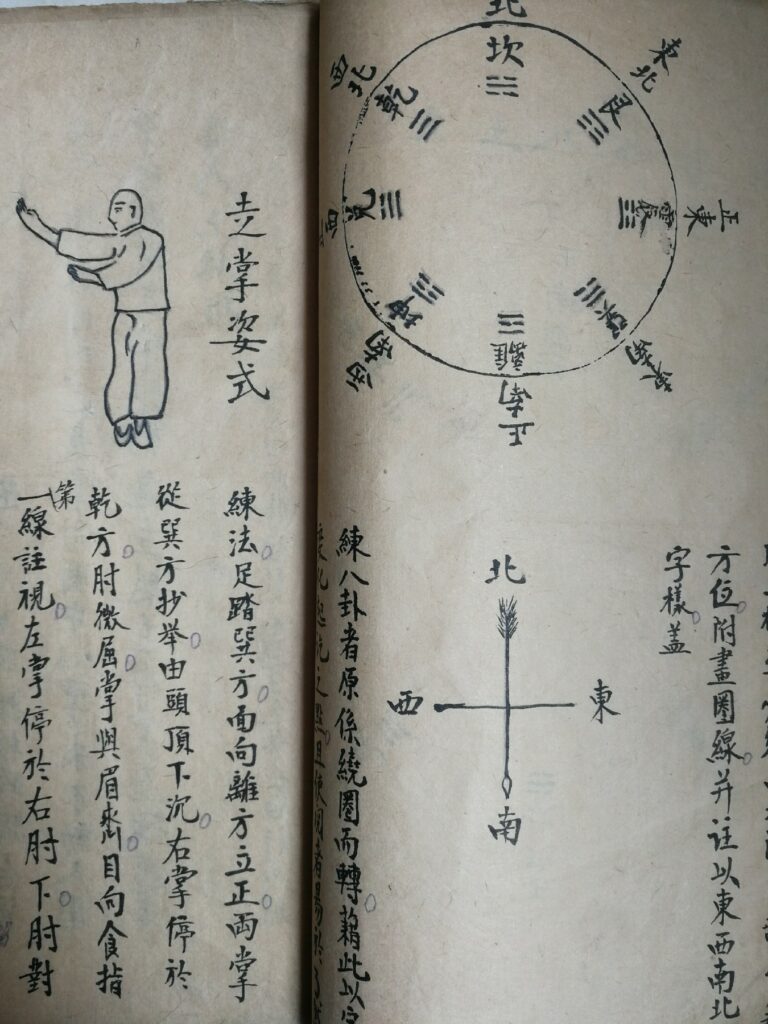 北
坎
東北
艮
正東
震
東南
巽
正南
離
西南
坤
西
兌
西北
乾
方位附畫圈線并註以東西南北
字樣蓋
北
東
西
南
練八卦者原係繞圈而轉藉此以
走掌姿式
練法足踏巽方面向離方立正両掌
從巽方抄举由頭頂下沉右掌停於
乾方肘微屈掌與眉齊目向食指
第一線註視左掌停於右肘下肘對